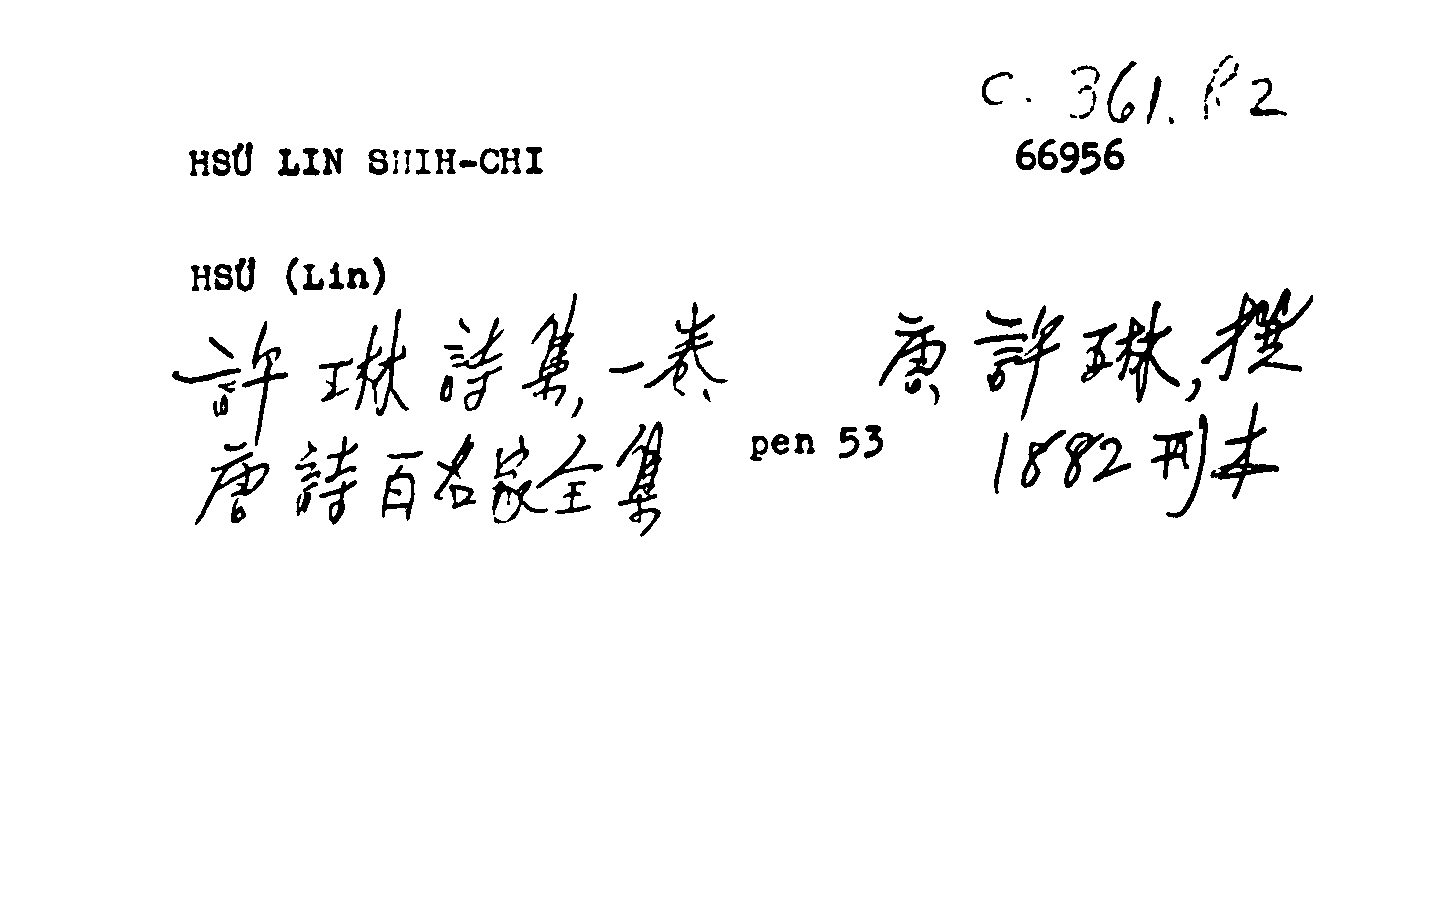 C. 361. R2
HSÜ LIN SHIH-CHI 66956
HSÜ (Lin)
許琳詩集,一卷、 唐許琳,撰
唐詩百名家全集 pen 53 1882刊本